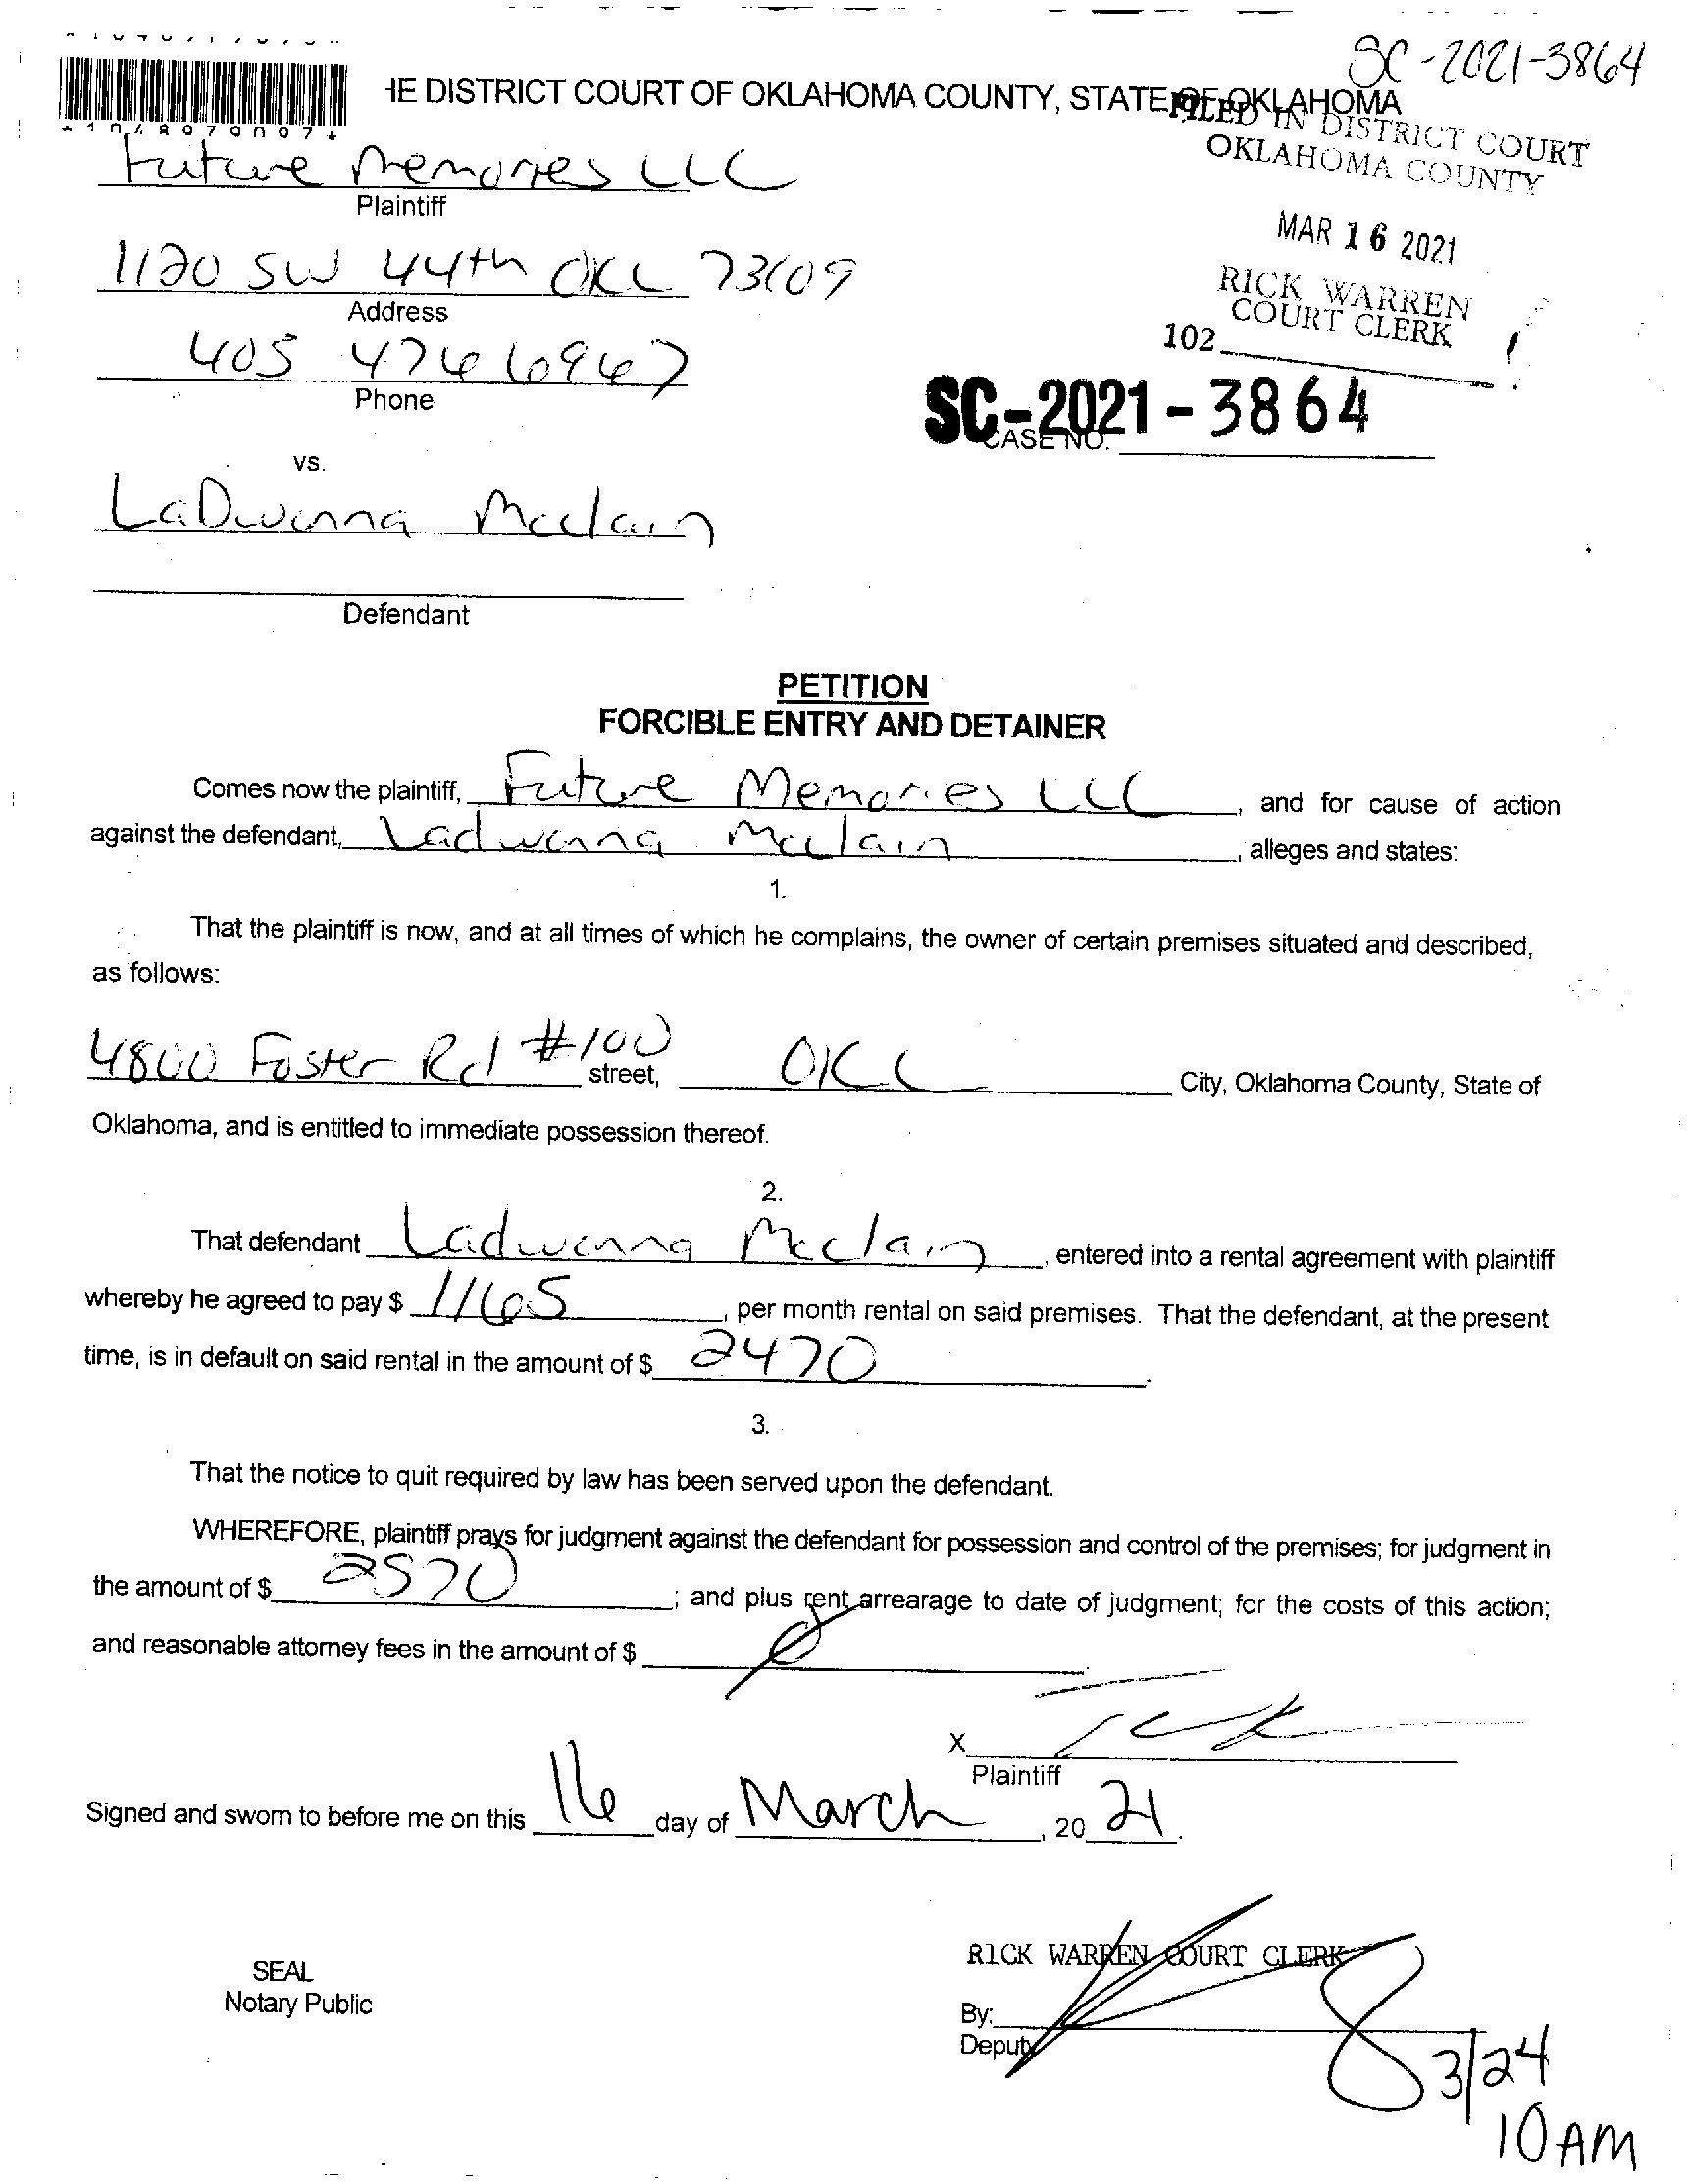 SC-2021-3864
HE DISTRICT COURT OF OKLAHOMA COUNTY, STATE OF OKLAHOMA
FILED IN DISTRICT COURT
OKLAHOMA COUNTY
Future Memories LLC
Plaintiff
MAR 16 2021
1120 SW 44th OKC 73109
Address
RICK WARREN
COURT CLERK
102
405 474 6967
Phone
SC-2021-3864
CASE NO.
vs.
LaDwanna Mcclain
Defendant
PETITION
FORCIBLE ENTRY AND DETAINER
Comes now the plaintiff, Future Memories LLC, and for cause of action
against the defendant, Ladwanna Mcclain, alleges and states:
1.
That the plaintiff is now, and at all times of which he complains, the owner of certain premises situated and described,
as follows:
4800 Foster Rd #100 street, OKC City, Oklahoma County, State of
Oklahoma, and is entitled to immediate possession thereof.
2.
That defendant Ladwanna Mcclain, entered into a rental agreement with plaintiff
whereby he agreed to pay $ 1165, per month rental on said premises. That the defendant, at the present
time, is in default on said rental in the amount of $ 2470.
3.
That the notice to quit required by law has been served upon the defendant.
WHEREFORE, plaintiff prays for judgment against the defendant for possession and control of the premises; for judgment in
the amount of $ 2570; and plus rent arrearage to date of judgment; for the costs of this action;
and reasonable attorney fees in the amount of $ Ø.
X
Plaintiff
Signed and sworn to before me on this 16 day of March, 20 21.
RICK WARREN COURT CLERK
SEAL
Notary Public
By:
Deputy
3/24
10 AM